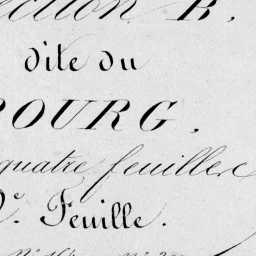 ection B.
dite du
BOURG.
quatre feuilles
e. Feuille.